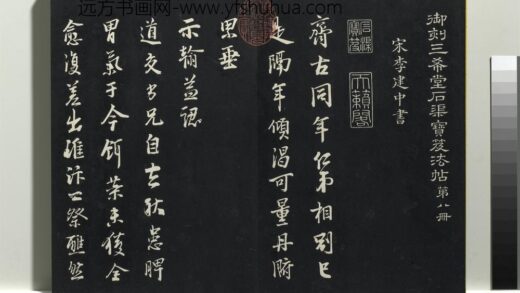 远方书画网 - www.yfshuhua.com
御刻三希堂石渠寶笈法帖 第八冊
宋李建中書
石渠寶笈
天籟閣
齊古同年仁弟相別已
是隔年傾渴可量丹腑
思垂
示翰益認
道交兄自去秋患脾
胃氣于今餌藥未獲全
愈復差出維汴祭醮然